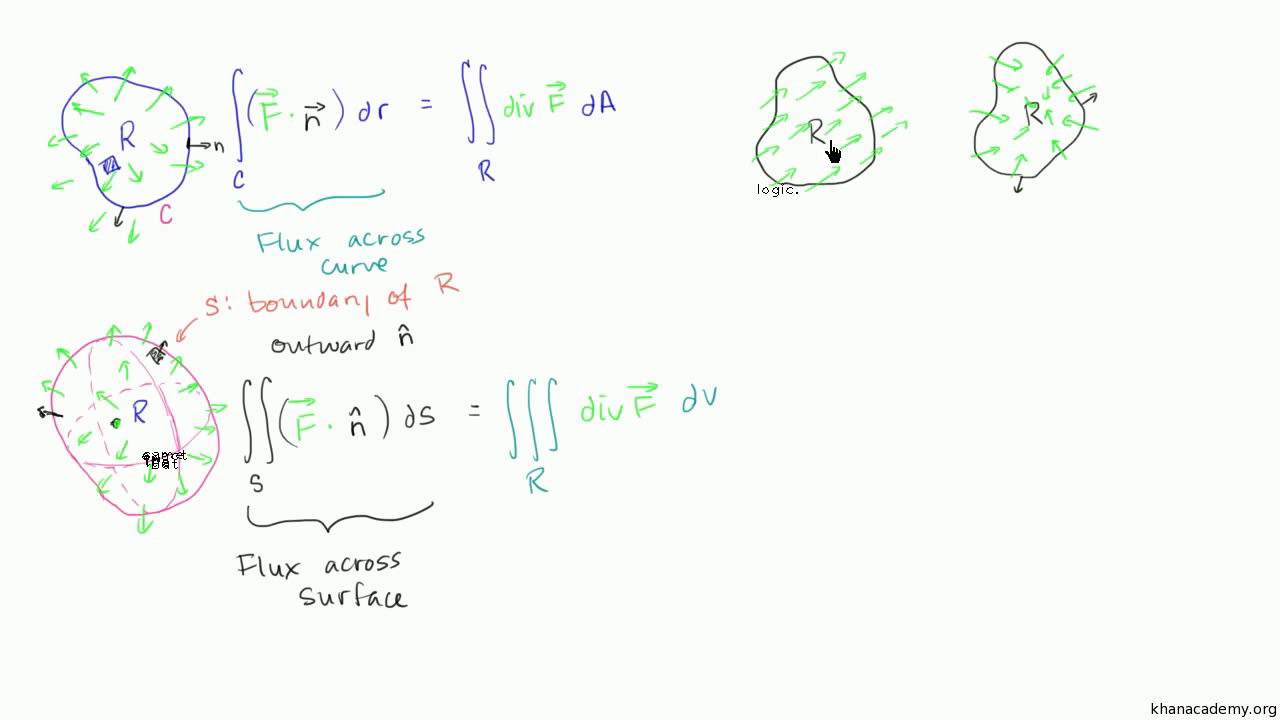 R
n
C
∫_C (F⃗ · n⃗) dr = ∬_R div F⃗ dA
Flux across
curve
S: boundary of R
outward n̂
R
∬_S (F⃗ · n̂) dS = ∭_R div F⃗ dV
Flux across
surface
R
logic.
R
khanacademy.org